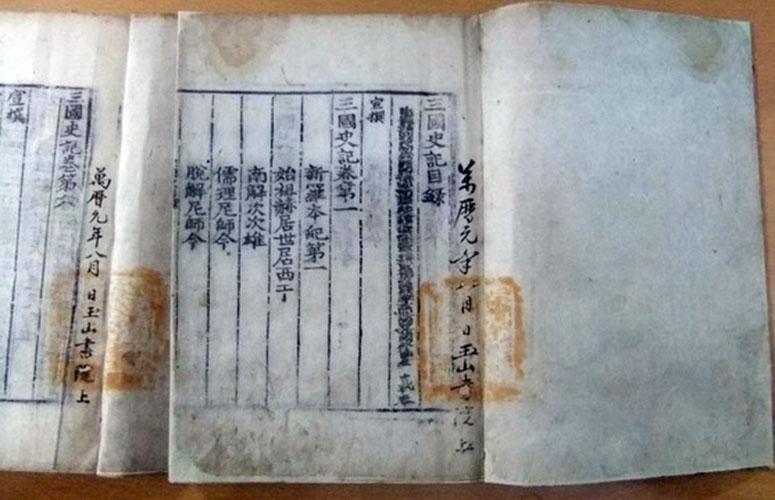 萬曆元年八月 日玉山書院上
三國史記目錄
宣撰
三國史記卷第一
新羅本紀第一
始祖赫居世居西干
南解次次雄
儒理尼師今
脫解尼師今
萬曆元年八月 日玉山書院上
三國史記卷第六
宣撰